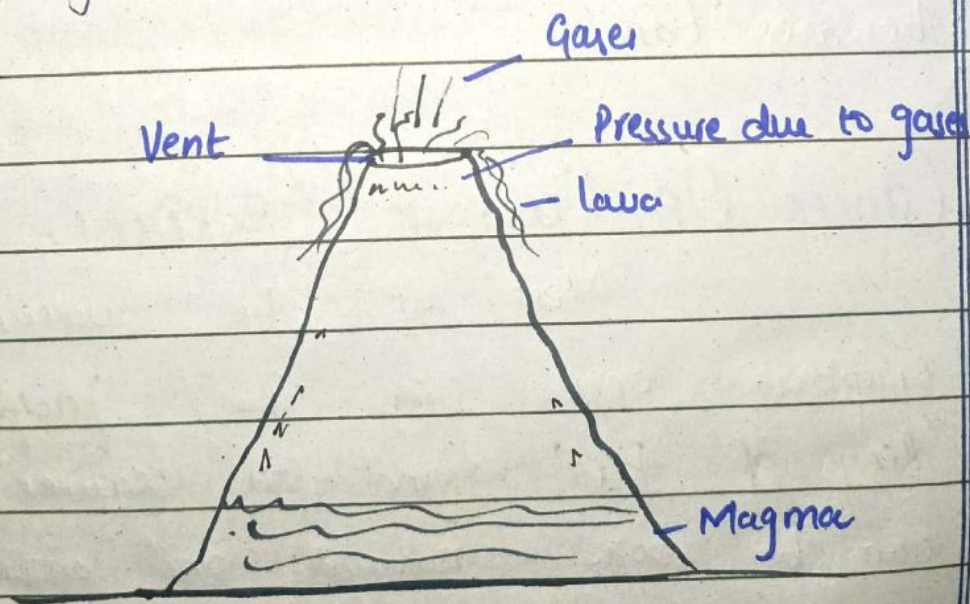 Gases
Vent
Pressure due to gases
lava
Magma